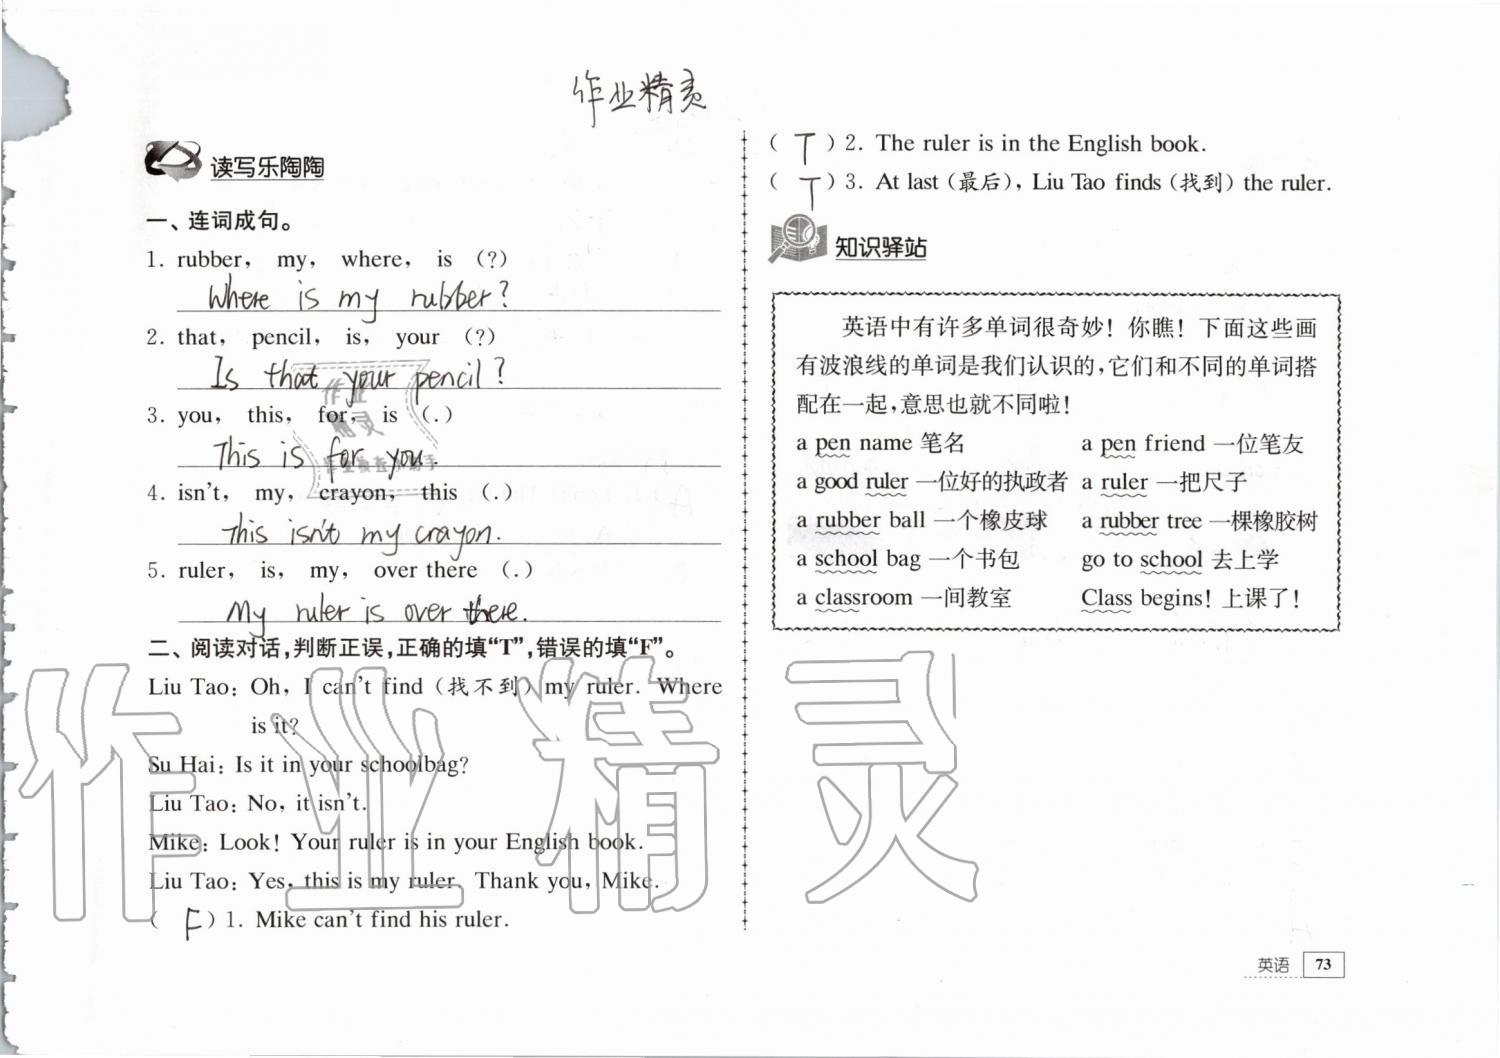 作业精灵
读写乐陶陶
一、连词成句。
1. rubber, my, where, is (?)
Where is my rubber?
2. that, pencil, is, your (?)
Is that your pencil?
3. you, this, for, is (.)
This is for you.
4. isn't, my, crayon, this (.)
This isn't my crayon.
5. ruler, is, my, over there (.)
My ruler is over there.
二、阅读对话,判断正误,正确的填“T”,错误的填“F”。
Liu Tao: Oh, I can't find (找不到) my ruler. Where
is it?
Su Hai: Is it in your schoolbag?
Liu Tao: No, it isn't.
Mike: Look! Your ruler is in your English book.
Liu Tao: Yes, this is my ruler. Thank you, Mike.
( F ) 1. Mike can't find his ruler.
( T ) 2. The ruler is in the English book.
( T ) 3. At last (最后), Liu Tao finds (找到) the ruler.
知识驿站
英语中有许多单词很奇妙! 你瞧! 下面这些画
有波浪线的单词是我们认识的,它们和不同的单词搭
配在一起,意思也就不同啦!
a pen name 笔名 a pen friend 一位笔友
a good ruler 一位好的执政者 a ruler 一把尺子
a rubber ball 一个橡皮球 a rubber tree 一棵橡胶树
a school bag 一个书包 go to school 去上学
a classroom 一间教室 Class begins! 上课了!
作业精灵
英语 73